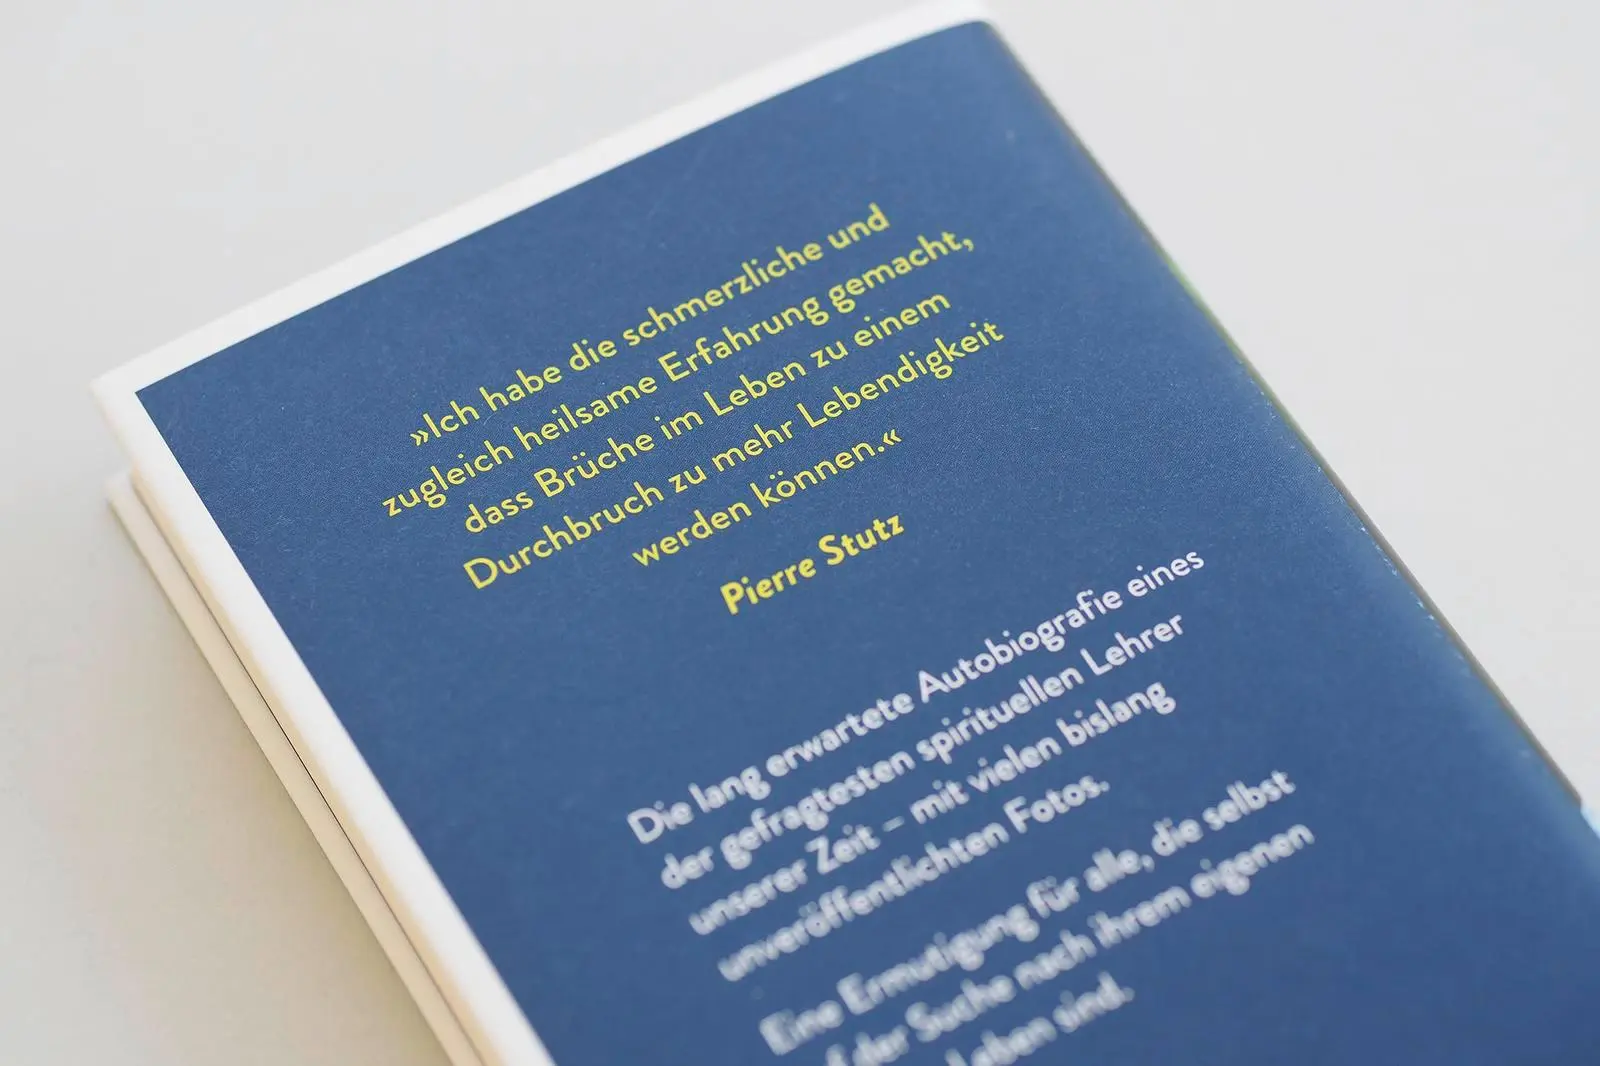 »Ich habe die schmerzliche und
zugleich heilsame Erfahrung gemacht,
dass Brüche im Leben zu einem
Durchbruch zu mehr Lebendigkeit
werden können.«
Pierre Stutz
Die lang erwartete Autobiografie eines
der gefragtesten spirituellen Lehrer
unserer Zeit – mit vielen bislang
unveröffentlichten Fotos.
Eine Ermutigung für alle, die selbst
der Suche nach ihrem eigenen
Leben sind.